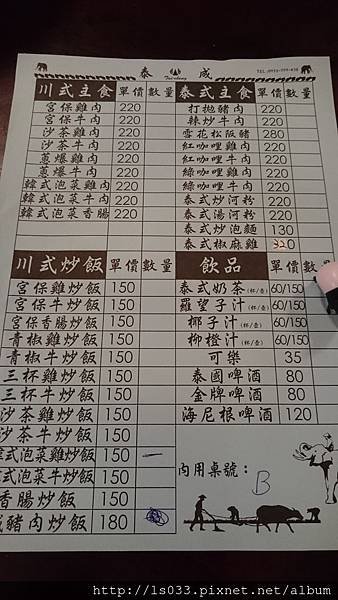 泰 威
Tai-wheey
TEL:0953-759-458
川式主食 單價 數量
宮保雞肉 220
宮保牛肉 220
沙茶雞肉 220
沙茶牛肉 220
蔥爆雞肉 220
蔥爆牛肉 220
韓式泡菜雞肉 220
韓式泡菜牛肉 220
韓式泡菜香腸 220
泰式主食 單價 數量
打拋豬肉 220
辣炒牛肉 220
雪花松阪豬 280
紅咖哩雞肉 220
紅咖哩牛肉 220
綠咖哩雞肉 220
綠咖哩牛肉 220
泰式炒河粉 220
泰式湯河粉 220
泰式炒泡麵 130
泰式椒麻雞 320
川式炒飯 單價 數量
宮保雞炒飯 150
宮保牛炒飯 150
宮保香腸炒飯 150
青椒雞炒飯 150
青椒牛炒飯 150
三杯雞炒飯 150
三杯牛炒飯 150
沙茶雞炒飯 150
沙茶牛炒飯 150
式泡菜雞炒飯 150
式泡菜牛炒飯 150
香腸炒飯 150
豬肉炒飯 180
飲品 單價 數量
泰式奶茶(杯/壺) 60/150
羅望子汁(杯/壺) 60/150
椰子汁(杯/壺) 60/150
柳橙汁(杯/壺) 60/150
可樂 35
泰國啤酒 80
金牌啤酒 80
海尼根啤酒 120
內用桌號：
B
http://ls033.pixnet.net/album